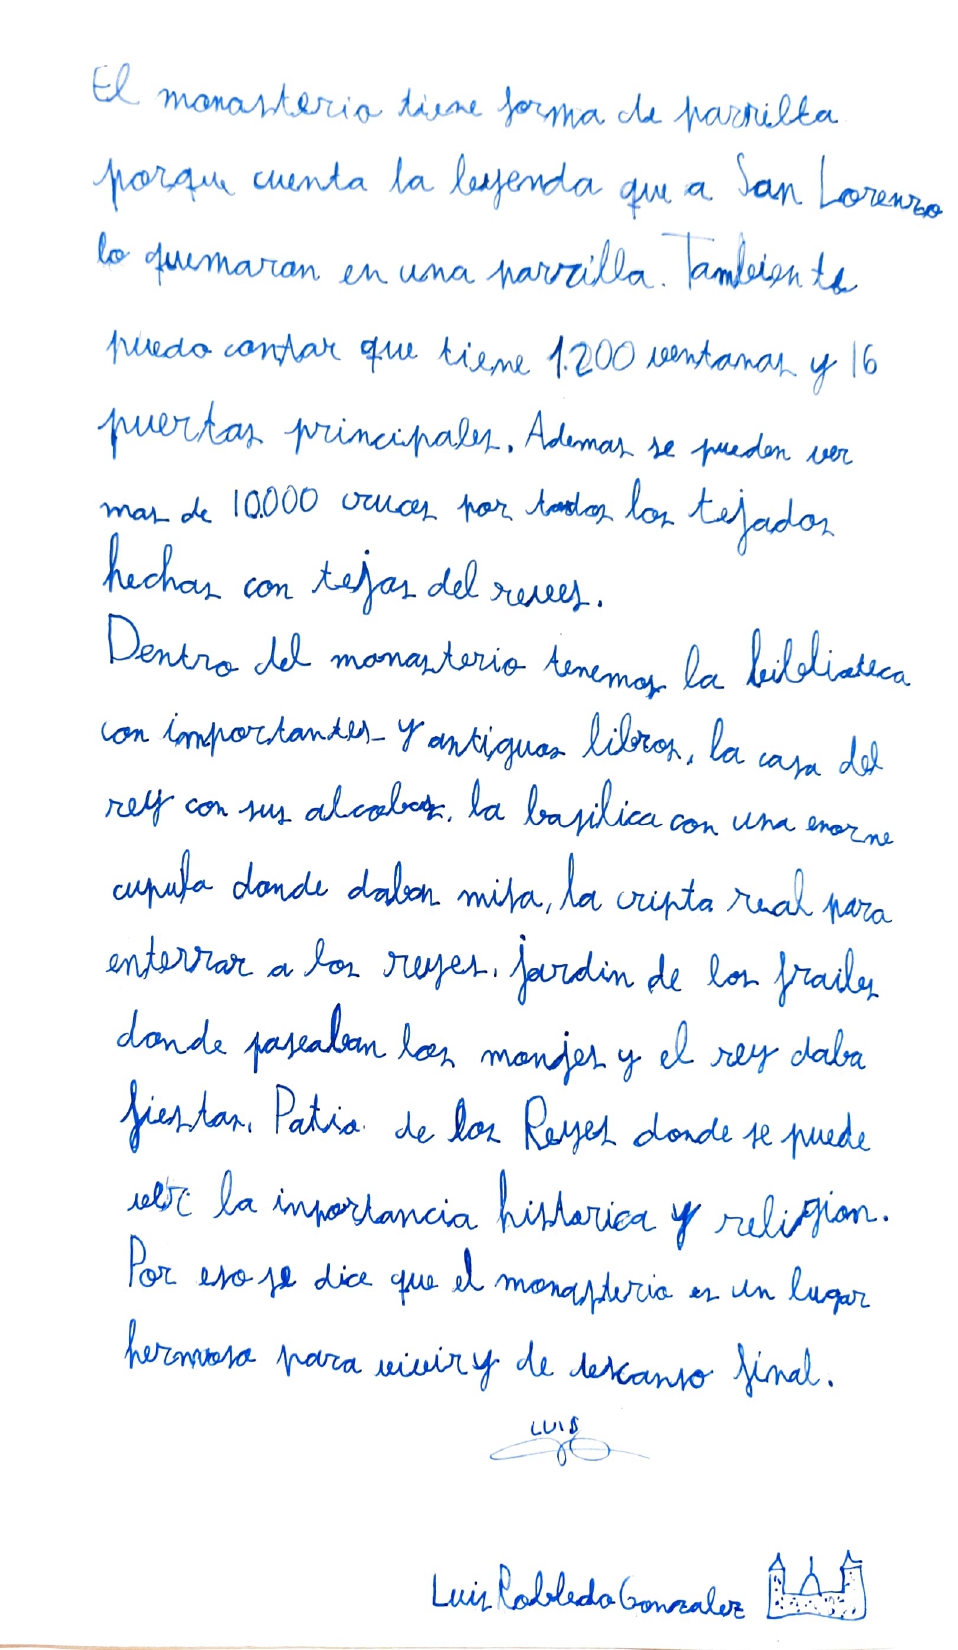 El monasterio tiene forma de parrilla
porque cuenta la leyenda que a San Lorenzo
lo quemaron en una parrilla. Tambien te
puedo contar que tiene 1.200 ventanas y 16
puertas principales. Ademas se pueden ver
mas de 10.000 cruces por todos los tejados
hechas con tejas del revees.
Dentro del monasterio tenemos la biblioteca
con importantes y antiguos libros, la casa del
rey con sus alcobas, la basilica con una enorme
cupula donde daban misa, la cripta real para
enterrar a los reyes, jardin de los frailes
donde paseaban los monjes y el rey daba
fiestas, Patio de los Reyes donde se puede
ver la inportancia historica y religion.
Por eso se dice que el monasterio es un lugar
hermoso para vivir y de descanso final.
LUIS
Luis Robledo Gonzalez